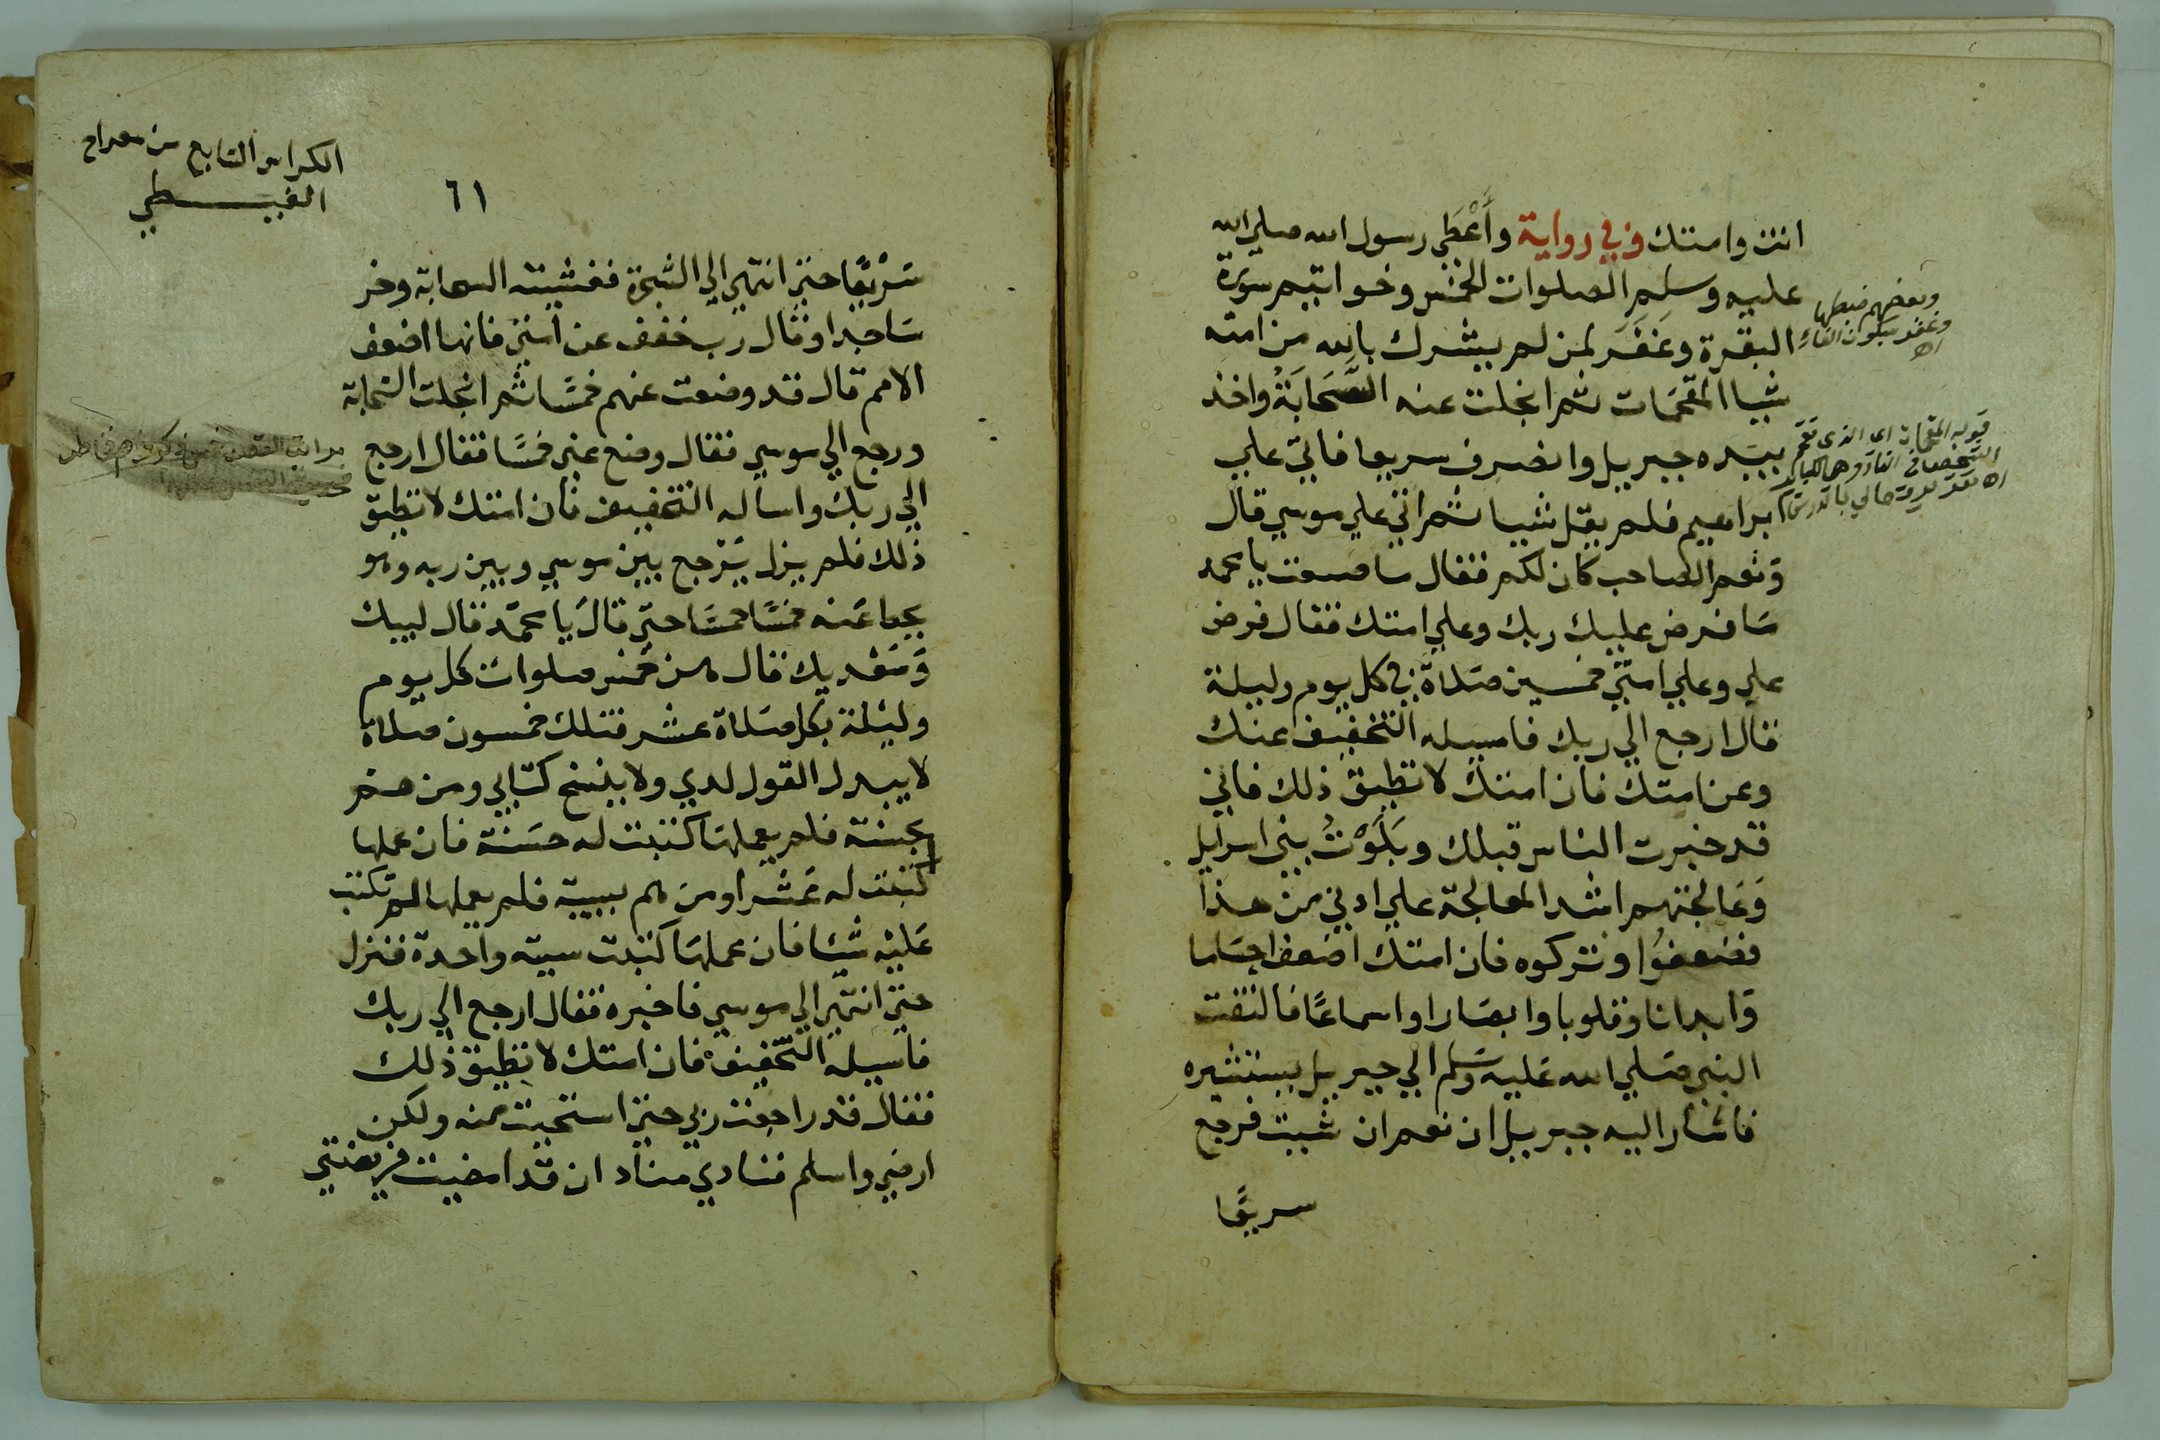 انت وامتك وفي رواية وأعطي رسول الله صلي الله
عليه وسلم الصلوات الخمس وخواتيم سورة
البقرة وغفر لمن لم يشرك بالله من امته
شيا المقحمات ثم انجلت عنه السحابة واخذ
بيده جبريل وانصرف سريعا فاتي علي
ابراهيم فلم يقل شيا ثم اتي علي موسي قال
ونعم الصاحب كان لكم فقال ما صنعت يا محمد
ما فرض عليك ربك وعلي امتك فقال فرض
علي وعلي امتي خمسين صلاة في كل يوم وليلة
قال ارجع الي ربك فاسيله التخفيف عنك
وعن امتك فان امتك لا تطيق ذلك فاني
قد خبرت الناس قبلك وبلوت بني اسرايل
وعالجتهم اشد المعالجة علي ادني من هذا
فضعفوا وتركوه فان امتك اضعف اجساما
وابدانا وقلوبا وابصارا واسماعا فالتفت
النبي صلي الله عليه وسلم الي جبريل يستشيره
فاشار اليه جبريل ان نعم ان شيت فرجع
سريعا
وبعضهم ضبطها
وغفر بسكون الفاء
اه
قوله المقحمات اي الذي تقحم
الشخص في النار وهي الكباير
اه
الكراس السابع من معراج
الغيطي
٦١
سريعا حتي انتهي الي الشجرة فغشيته السحابة وخر
ساجدا وقال رب خفف عن امتي فانها اضعف
الامم قال قد وضعت عنهم خمسا ثم انجلت السحابة
ورجع الي موسي فقال وضع عني خمسا فقال ارجع
الي ربك واساله التخفيف فان امتك لا تطيق
ذلك فلم يزل يرجع بين موسي وبين ربه وهو
يحط عنه خمسا خمسا حتي قال يا محمد قال لبيك
وسعديك قال هن خمس صلوات كل يوم
وليلة بكل صلاة عشر فتلك خمسون صلاة
لا يبدل القول لدي ولا ينسخ كتابي ومن هم
بحسنة فلم يعملها كتبت له حسنة فان عملها
كتبت له عشرا ومن هم بسيية فلم يعملها لم تكتب
عليه شيا فان عملها كتبت سيية واحدة فنزل
حتي انتهي الي موسي فاخبره فقال ارجع الي ربك
فاسيله التخفيف فان امتك لا تطيق ذلك
فقال قد راجعت ربي حتي استحييت منه ولكن
ارضي واسلم فنادي مناد ان قد امضيت فريضتي